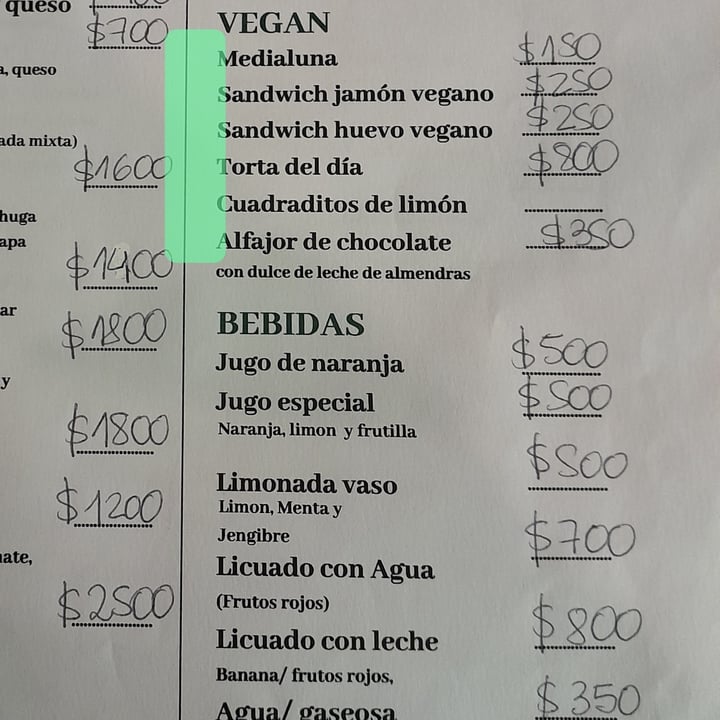 queso
$700
a, queso
ada mixta)
$1600
huga
apa
$1400
ar
$1800
y
$1800
$1200
ate,
$2500
VEGAN
Medialuna $150
Sandwich jamón vegano $250
Sandwich huevo vegano $250
Torta del día $800
Cuadraditos de limón
Alfajor de chocolate $350
con dulce de leche de almendras
BEBIDAS
Jugo de naranja $500
Jugo especial $500
Naranja, limon y frutilla
Limonada vaso $500
Limon, Menta y
Jengibre
Licuado con Agua $700
(Frutos rojos)
Licuado con leche $800
Banana/ frutos rojos,
Agua/ gaseosa $350